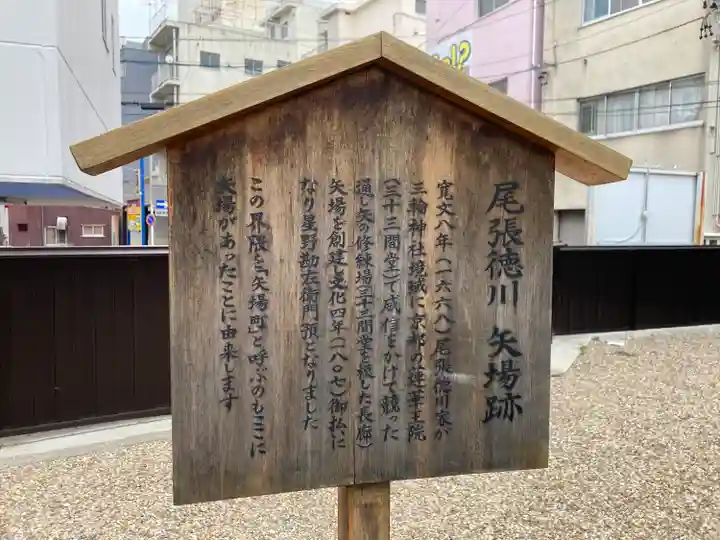 尾張徳川 矢場跡
寛文八年(一六六八)尾張徳川家が
三輪神社境域に京都の蓮華王院
(三十三間堂)で威信をかけて競った
通し矢の修練場(三十三間堂を模した長廊)
矢場を創建し文化四年(一八〇七)御払いに
なり星野勘左衛門預となりました
この界隈を「矢場町」と呼ぶのもここに
矢場があったことに由来します